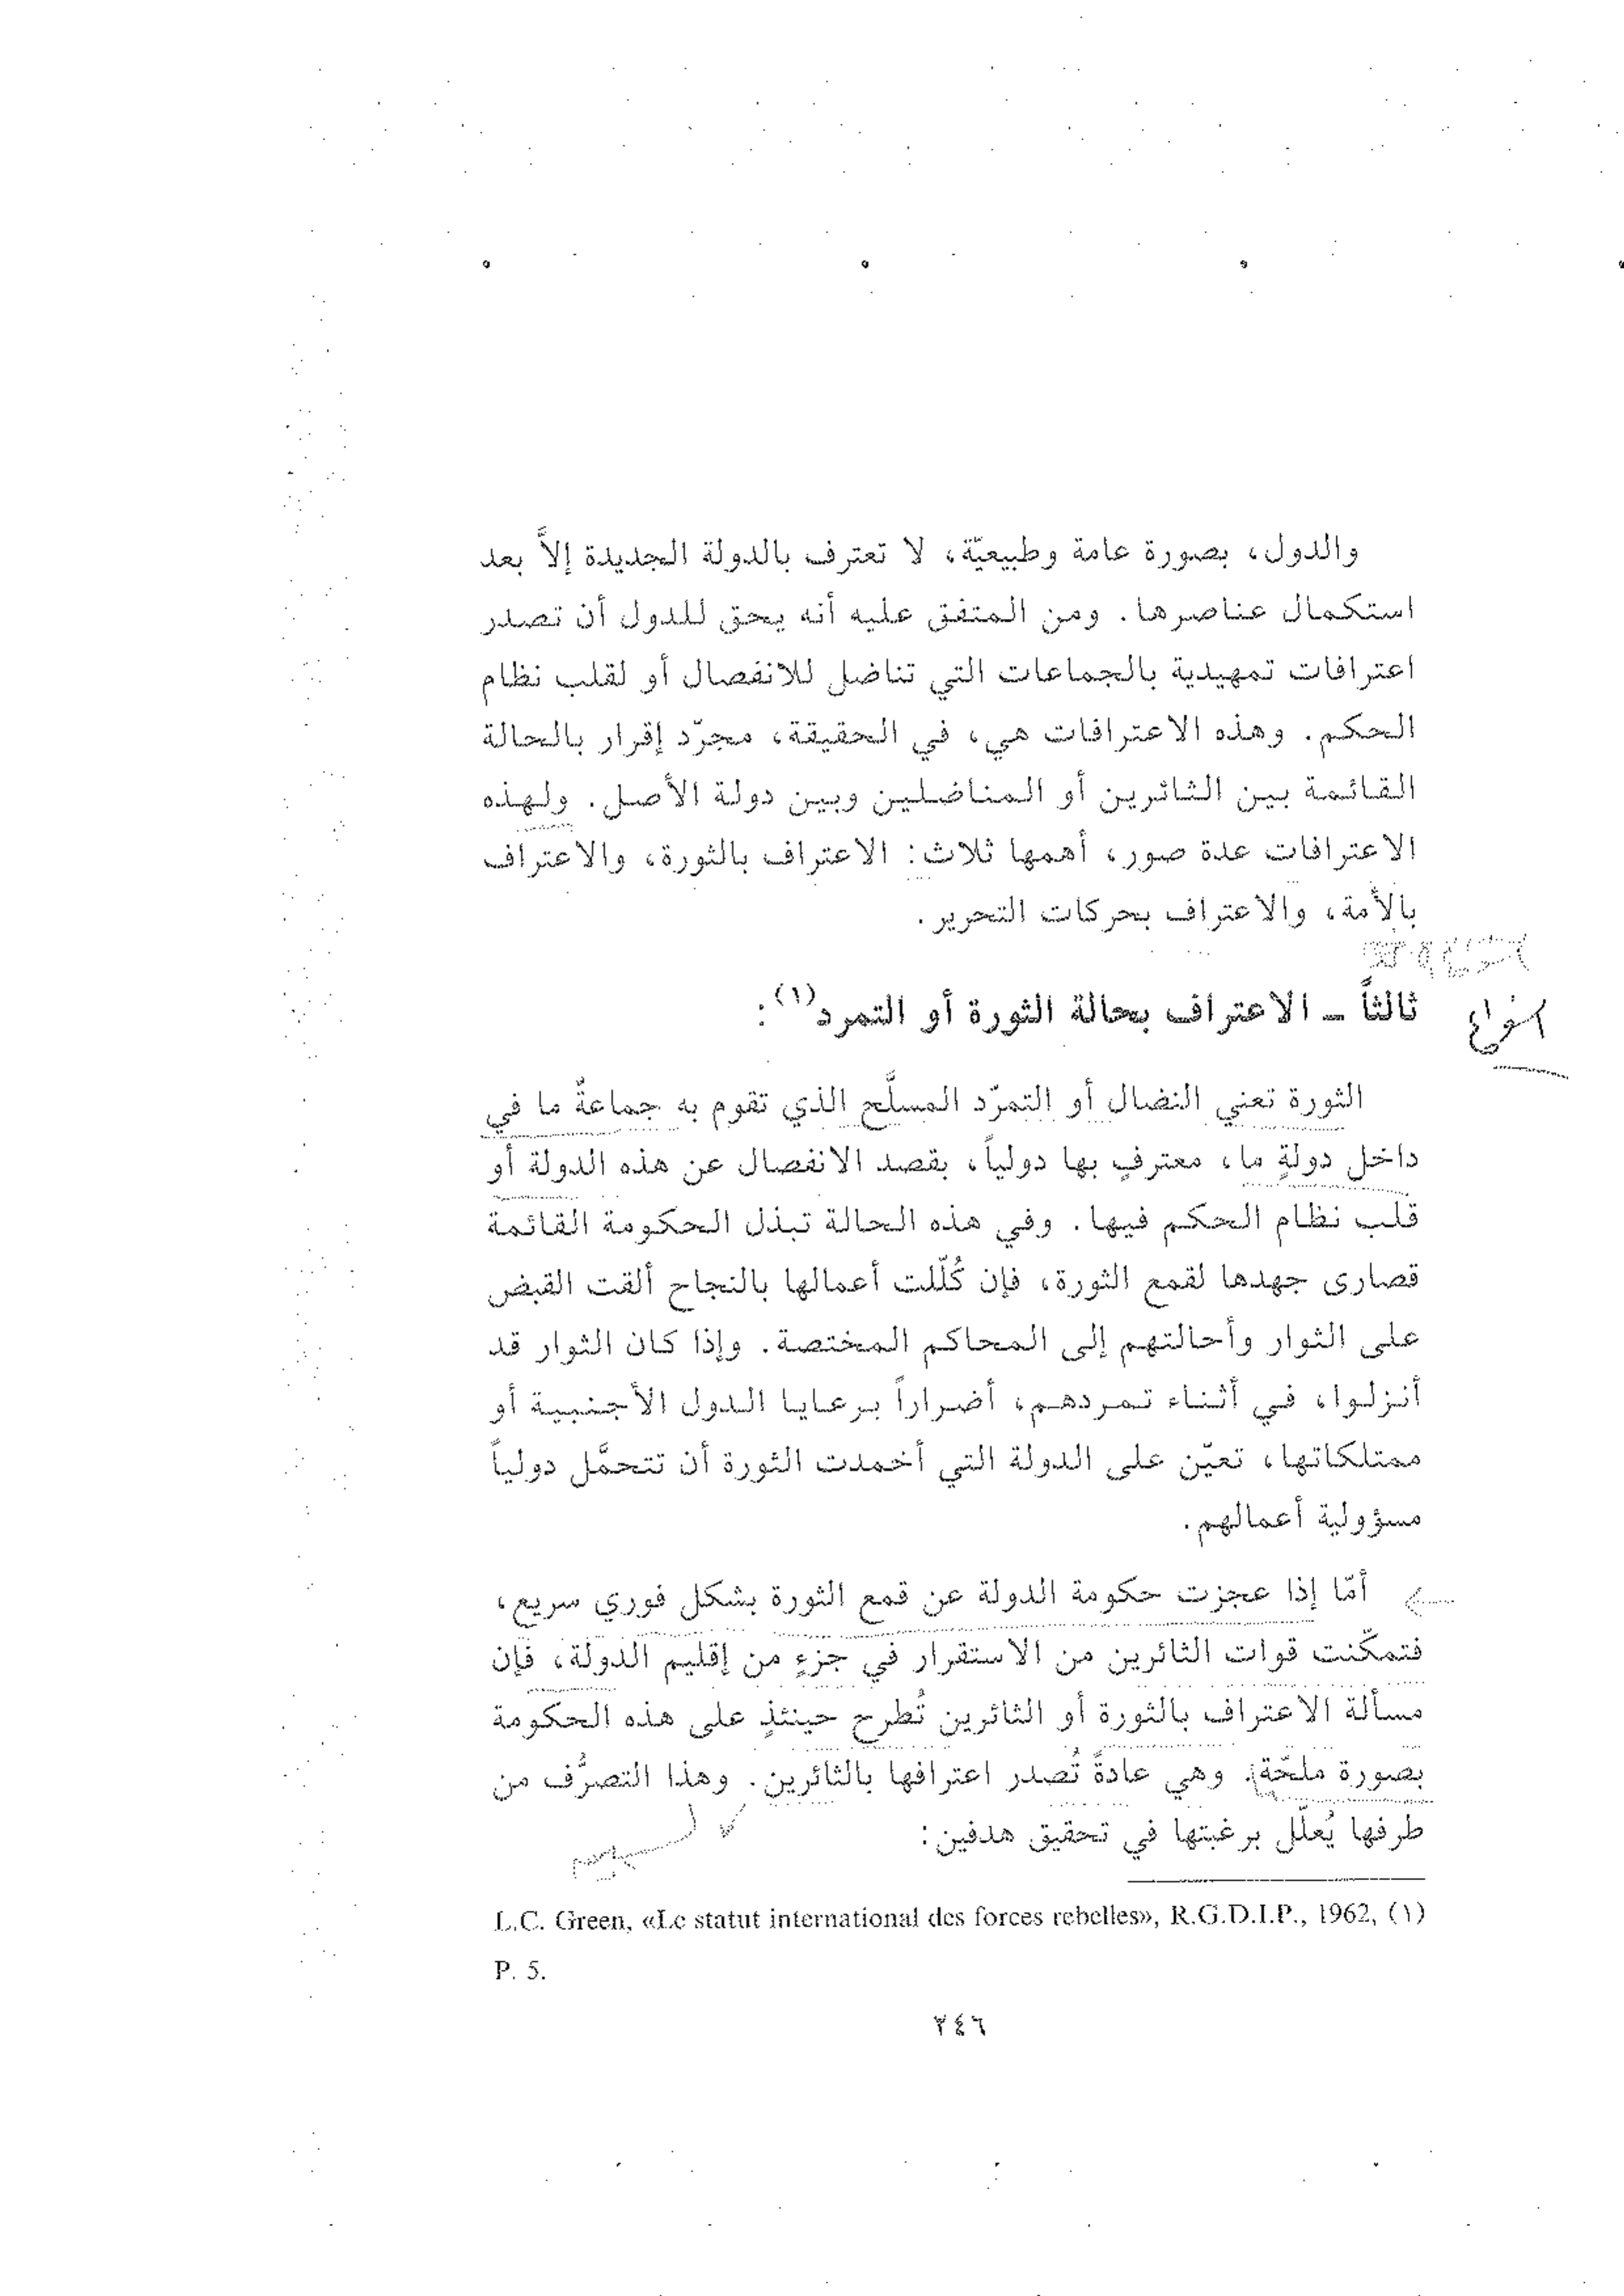 والدول، بصورة عامة وطبيعيّة، لا تعترف بالدولة الجديدة إلاَّ بعد
استكمال عناصرها. ومن المتفق عليه أنه يحق للدول أن تصدر
اعترافات تمهيدية بالجماعات التي تناضل للانفصال أو لقلب نظام
الحكم. وهذه الاعترافات هي، في الحقيقة، مجرّد إقرار بالحالة
القائمة بين الثائرين أو المناضلين وبين دولة الأصل. ولهذه
الاعترافات عدة صور، أهمها ثلاث: الاعتراف بالثورة، والاعتراف
بالأمة، والاعتراف بحركات التحرير.
ثالثاً ـ الاعتراف بحالة الثورة أو التمرد(١):
انواع
الثورة تعني النضال أو التمرّد المسلَّح الذي تقوم به جماعةٌ ما في
داخل دولةٍ ما، معترفٍ بها دولياً، بقصد الانفصال عن هذه الدولة أو
قلب نظام الحكم فيها. وفي هذه الحالة تبذل الحكومة القائمة
قصارى جهدها لقمع الثورة، فإن كُلّلت أعمالها بالنجاح ألقت القبض
على الثوار وأحالتهم إلى المحاكم المختصة. وإذا كان الثوار قد
أنزلوا، في أثناء تمردهم، أضراراً برعايا الدول الأجنبية أو
ممتلكاتها، تعيّن على الدولة التي أخمدت الثورة أن تتحمَّل دولياً
مسؤولية أعمالهم.
أمّا إذا عجزت حكومة الدولة عن قمع الثورة بشكل فوري سريع،
فتمكّنت قوات الثائرين من الاستقرار في جزءٍ من إقليم الدولة، فإن
مسألة الاعتراف بالثورة أو الثائرين تُطرح حينئذٍ على هذه الحكومة
بصورة ملحّة. وهي عادةً تُصدر اعترافها بالثائرين. وهذا التصرُّف من
طرفها يُعلّل برغبتها في تحقيق هدفين:
L.C. Green, «Le statut international des forces rebelles», R.G.D.I.P., 1962, (١)
P. 5.
٣٤٦